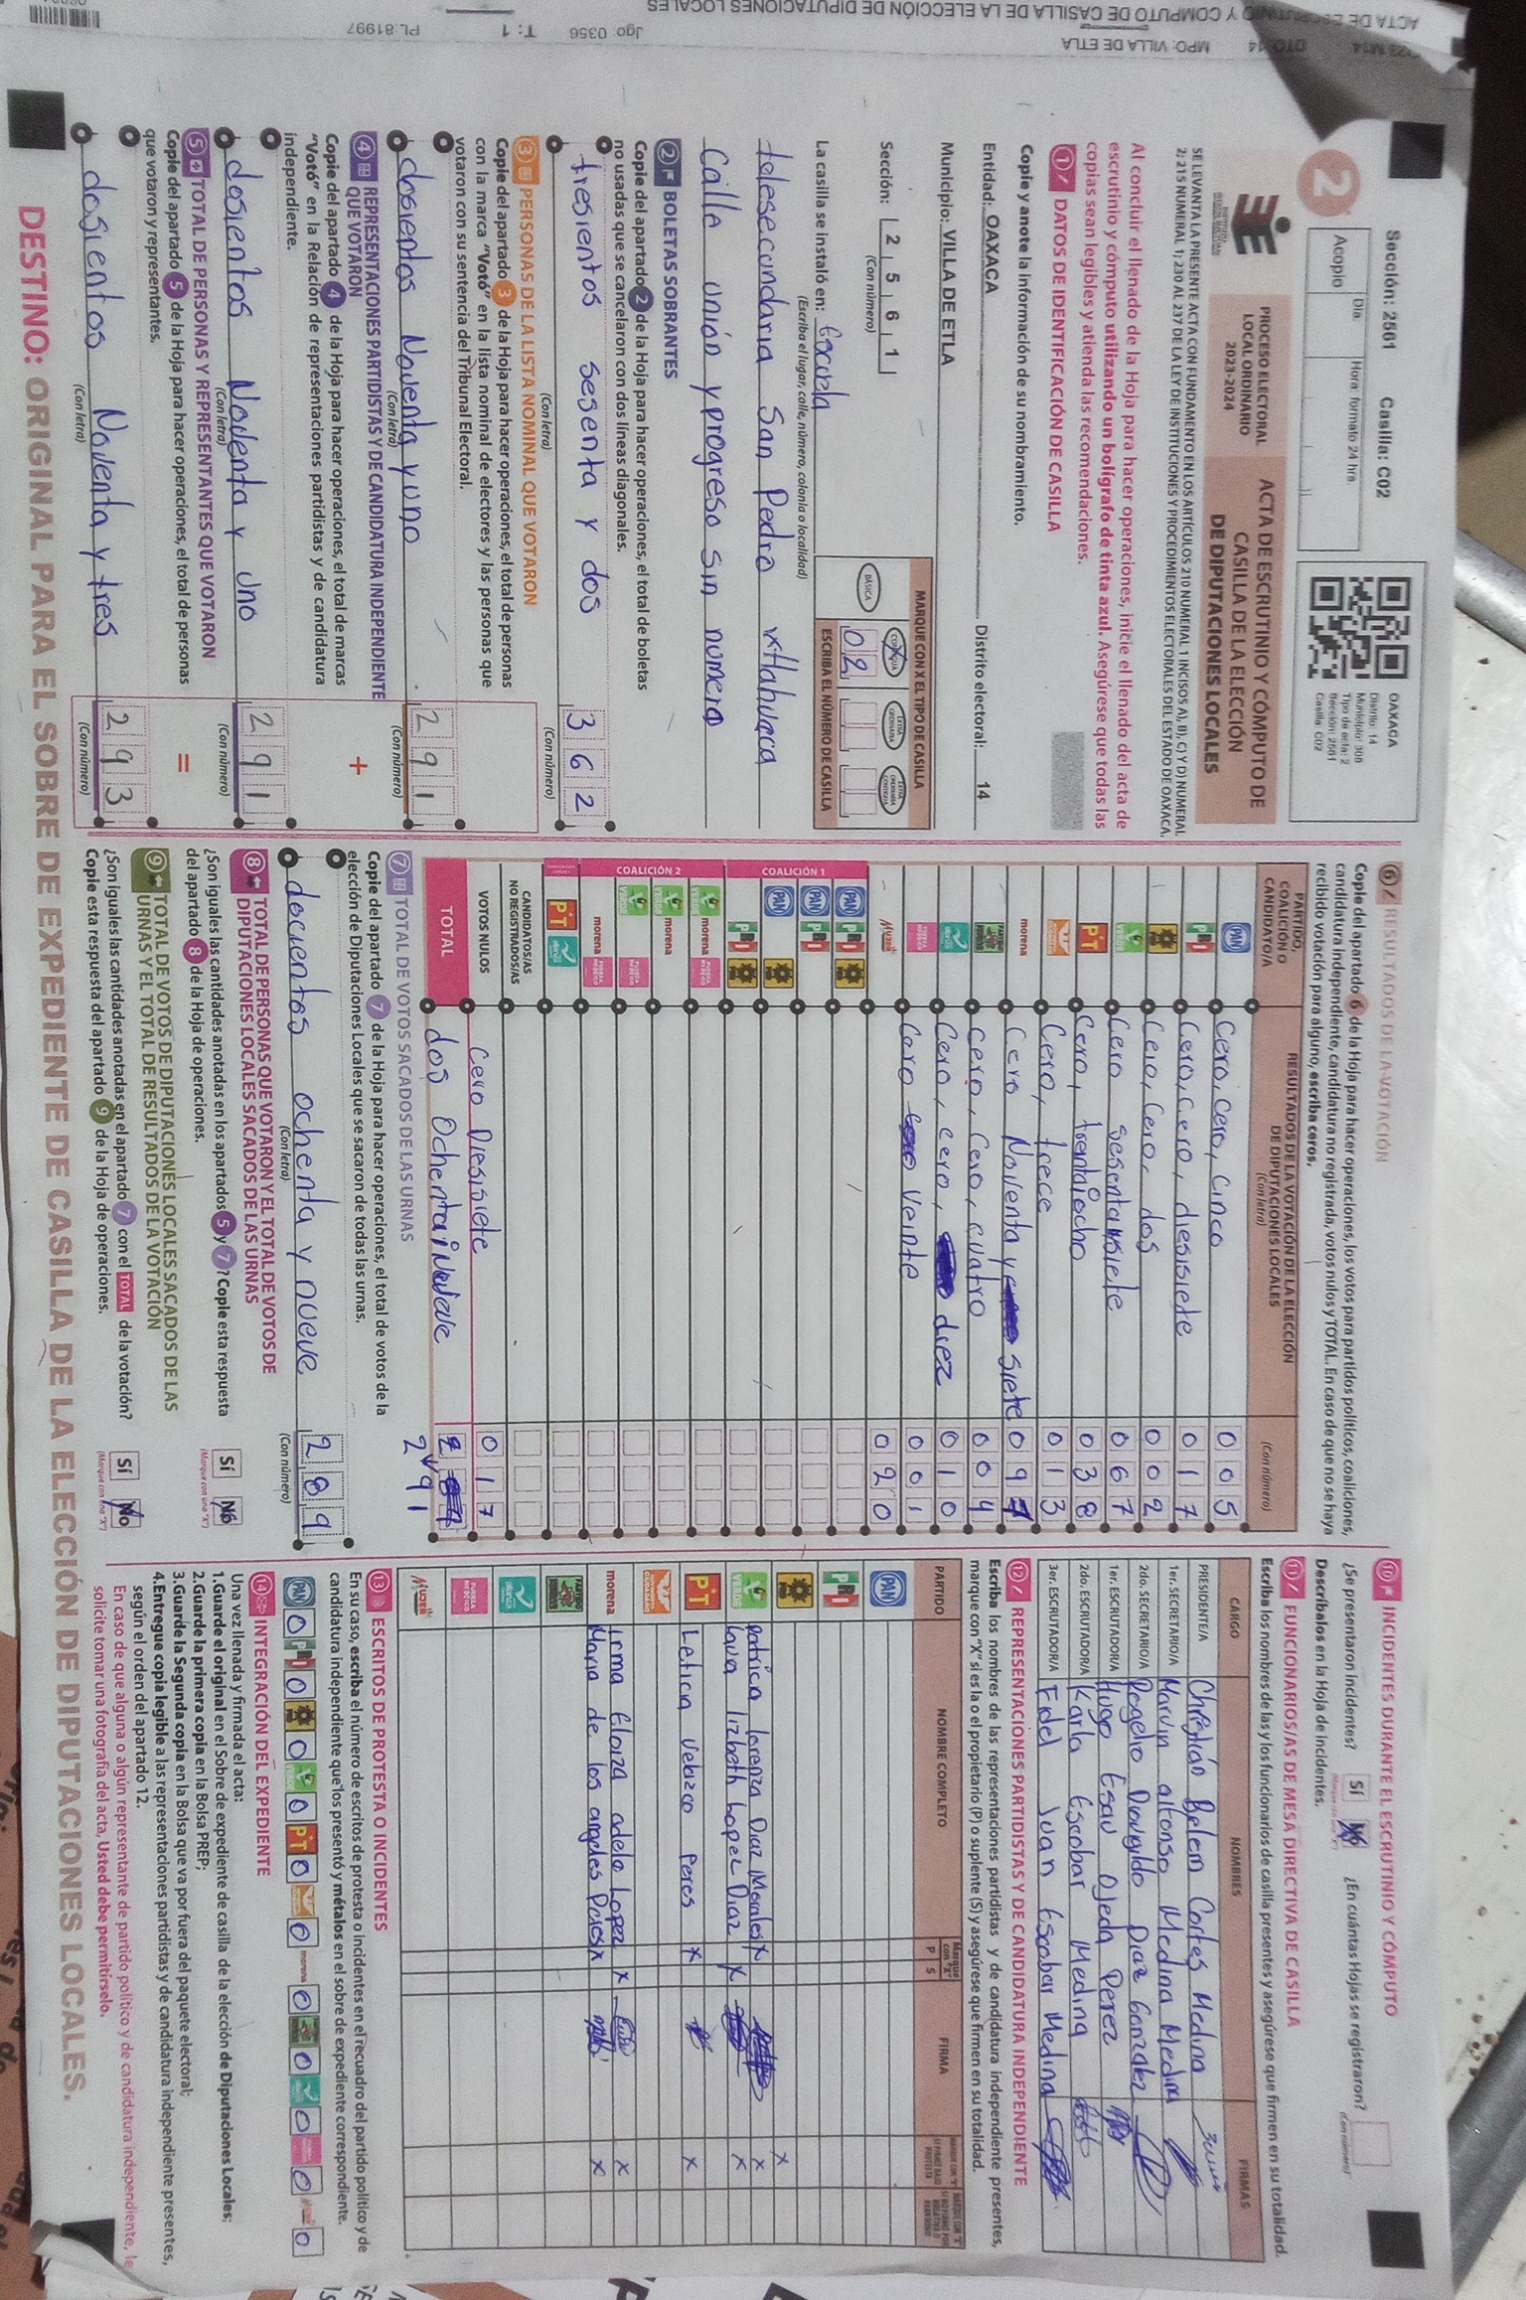 Sección: 2561 Casilla: C02
Día: Hora: formato 24 hrs.
Acopio
2
OAXACA
Distrito: 14
Municipio: 308
Tipo de acta: 2
Sección: 2561
Casilla: C02
PROCESO ELECTORAL
LOCAL ORDINARIO
2023-2024
ACTA DE ESCRUTINIO Y CÓMPUTO DE
CASILLA DE LA ELECCIÓN
DE DIPUTACIONES LOCALES
SE LEVANTA LA PRESENTE ACTA CON FUNDAMENTO EN LOS ARTÍCULOS 210 NUMERAL 1 INCISOS A), B), C) Y D) NUMERAL
2; 215 NUMERAL 1; 230 AL 237 DE LA LEY DE INSTITUCIONES Y PROCEDIMIENTOS ELECTORALES DEL ESTADO DE OAXACA.
Al concluir el llenado de la Hoja para hacer operaciones, inicie el llenado del acta de
escrutinio y cómputo utilizando un bolígrafo de tinta azul. Asegúrese que todas las
copias sean legibles y atienda las recomendaciones.
1 DATOS DE IDENTIFICACIÓN DE CASILLA
Copie y anote la información de su nombramiento.
Entidad: OAXACA Distrito electoral: 14
Municipio: VILLA DE ETLA
Sección: 2 5 6 1
(Con número)
MARQUE CON X EL TIPO DE CASILLA
BÁSICA
0 2
ESCRIBA EL NÚMERO DE CASILLA
La casilla se instaló en: Escuela
(Escriba el lugar, calle, número, colonia o localidad)
telesecundaria San Pedro ixtlahuaca
Calle unión y progreso sin numero
2 BOLETAS SOBRANTES
Copie del apartado 2 de la Hoja para hacer operaciones, el total de boletas
no usadas que se cancelaron con dos líneas diagonales.
tresientos sesenta y dos 3 6 2
(Con letra) (Con número)
3 PERSONAS DE LA LISTA NOMINAL QUE VOTARON
Copie del apartado 3 de la Hoja para hacer operaciones, el total de personas
con la marca "Votó" en la lista nominal de electores y las personas que
votaron con su sentencia del Tribunal Electoral.
dosientos Noventa y uno 2 9 1
(Con letra) (Con número)
4 REPRESENTACIONES PARTIDISTAS Y DE CANDIDATURA INDEPENDIENTE
QUE VOTARON
Copie del apartado 4 de la Hoja para hacer operaciones, el total de marcas
"Votó" en la Relación de representaciones partidistas y de candidatura
independiente.
+
dosientos Noventa y uno 2 9 1
(Con letra) (Con número)
5 TOTAL DE PERSONAS Y REPRESENTANTES QUE VOTARON
Copie del apartado 5 de la Hoja para hacer operaciones, el total de personas
que votaron y representantes.
=
dosientos Noventa y tres 2 9 3
(Con letra) (Con número)
6 RESULTADOS DE LA VOTACIÓN
Copie del apartado 6 de la Hoja para hacer operaciones, los votos para partidos políticos, coaliciones,
candidatura independiente, candidatura no registrada, votos nulos y TOTAL. En caso de que no se haya
recibido votación para alguno, escriba ceros.
PARTIDO,
COALICIÓN O
CANDIDATO/A
RESULTADOS DE LA VOTACIÓN DE LA ELECCIÓN
DE DIPUTACIONES LOCALES
(Con letra) (Con número)
PAN Cero, Cero, Cinco 0 0 5
PRI Cero, Cero, diesisiete 0 1 7
PRD Cero, Cero, dos 0 0 2
VERDE Cero sesentaysiete 0 6 7
PT Cero, treintaiocho 0 3 8
Cero, trece 0 1 3
morena Cero Noventa y siete 0 9 7
Cero, Cero, cuatro 0 0 4
Cero, cero, diez 0 1 0
0 0 1
MUJER Cero Veinte 0 2 0
COALICIÓN 1
PAN PRI PRD
PAN PRI
PAN PRD
PRI PRD
COALICIÓN 2
VERDE morena
VERDE morena
VERDE
morena
PT
CANDIDATOS/AS
NO REGISTRADOS/AS
VOTOS NULOS Cero Diesisiete 0 1 7
TOTAL dos Ochentainueve 2
291
7 TOTAL DE VOTOS SACADOS DE LAS URNAS
Copie del apartado 7 de la Hoja para hacer operaciones, el total de votos de la
elección de Diputaciones Locales que se sacaron de todas las urnas.
docientos ochenta y nueve 2 8 9
(Con letra) (Con número)
8 TOTAL DE PERSONAS QUE VOTARON Y EL TOTAL DE VOTOS DE
DIPUTACIONES LOCALES SACADOS DE LAS URNAS
¿Son iguales las cantidades anotadas en los apartados 5 y 7? Copie esta respuesta
del apartado 8 de la Hoja de operaciones.
Sí No
(Marque con una "X")
9 TOTAL DE VOTOS DE DIPUTACIONES LOCALES SACADOS DE LAS
URNAS Y EL TOTAL DE RESULTADOS DE LA VOTACIÓN
¿Son iguales las cantidades anotadas en el apartado 7 con el TOTAL de la votación?
Copie esta respuesta del apartado 9 de la Hoja de operaciones.
Sí No
(Marque con una "X")
10 INCIDENTES DURANTE EL ESCRUTINIO Y CÓMPUTO
¿Se presentaron incidentes? Sí No ¿En cuántas Hojas se registraron?
(Con número)
Descríbalos en la Hoja de incidentes.
11 FUNCIONARIOS/AS DE MESA DIRECTIVA DE CASILLA
Escriba los nombres de las y los funcionarios de casilla presentes y asegúrese que firmen en su totalidad.
CARGO NOMBRES FIRMAS
PRESIDENTE/A Christián Belem Cortes Medina
1er. SECRETARIO/A Marvin alfonso Medina Medina
2do. SECRETARIO/A Rogelio Diaz Gonzalez
1er. ESCRUTADOR/A Hugo Esau Ojeda Perez
2do. ESCRUTADOR/A Karla Escobar Medina
3er. ESCRUTADOR/A Fidel Juan Escobar Medina
12 REPRESENTACIONES PARTIDISTAS Y DE CANDIDATURA INDEPENDIENTE
Escriba los nombres de las representaciones partidistas y de candidatura independiente presentes,
marque con "X" si es la o el propietario (P) o suplente (S) y asegúrese que firmen en su totalidad.
PARTIDO NOMBRE COMPLETO P S FIRMA
PAN
PRI
PRD x
VERDE patricia lorenza Diaz Morales x x
laura lizbeth Lopez Diaz x x
PT Leticia Velazco Peres x x
morena Irma Eloiza adela Lopez x x
Maria de los angeles x x
MUJER
13 ESCRITOS DE PROTESTA O INCIDENTES
En su caso, escriba el número de escritos de protesta o incidentes en el recuadro del partido político y de
candidatura independiente que los presentó y métalos en el sobre de expediente correspondiente.
PAN 0 PRI 0 PRD 0 VERDE 0 PT 0 0 morena 0 0 0 0 0
14 INTEGRACIÓN DEL EXPEDIENTE
Una vez llenada y firmada el acta:
1.Guarde el original en el Sobre de expediente de casilla de la elección de Diputaciones Locales;
2.Guarde la primera copia en la Bolsa PREP;
3.Guarde la Segunda copia en la Bolsa que va por fuera del paquete electoral;
4.Entregue copia legible a las representaciones partidistas y de candidatura independiente presentes,
según el orden del apartado 12.
En caso de que alguna o algún representante de partido político y de candidatura independiente, le
solicite tomar una fotografía del acta, Usted debe permitírselo.
DESTINO: ORIGINAL PARA EL SOBRE DE EXPEDIENTE DE CASILLA DE LA ELECCIÓN DE DIPUTACIONES LOCALES.
DTO: 14 MPO: VILLA DE ETLA
ACTA DE ESCRUTINIO Y COMPUTO DE CASILLA DE LA ELECCIÓN DE DIPUTACIONES LOCALES
Jgo 0356 T: 1 PL 81997